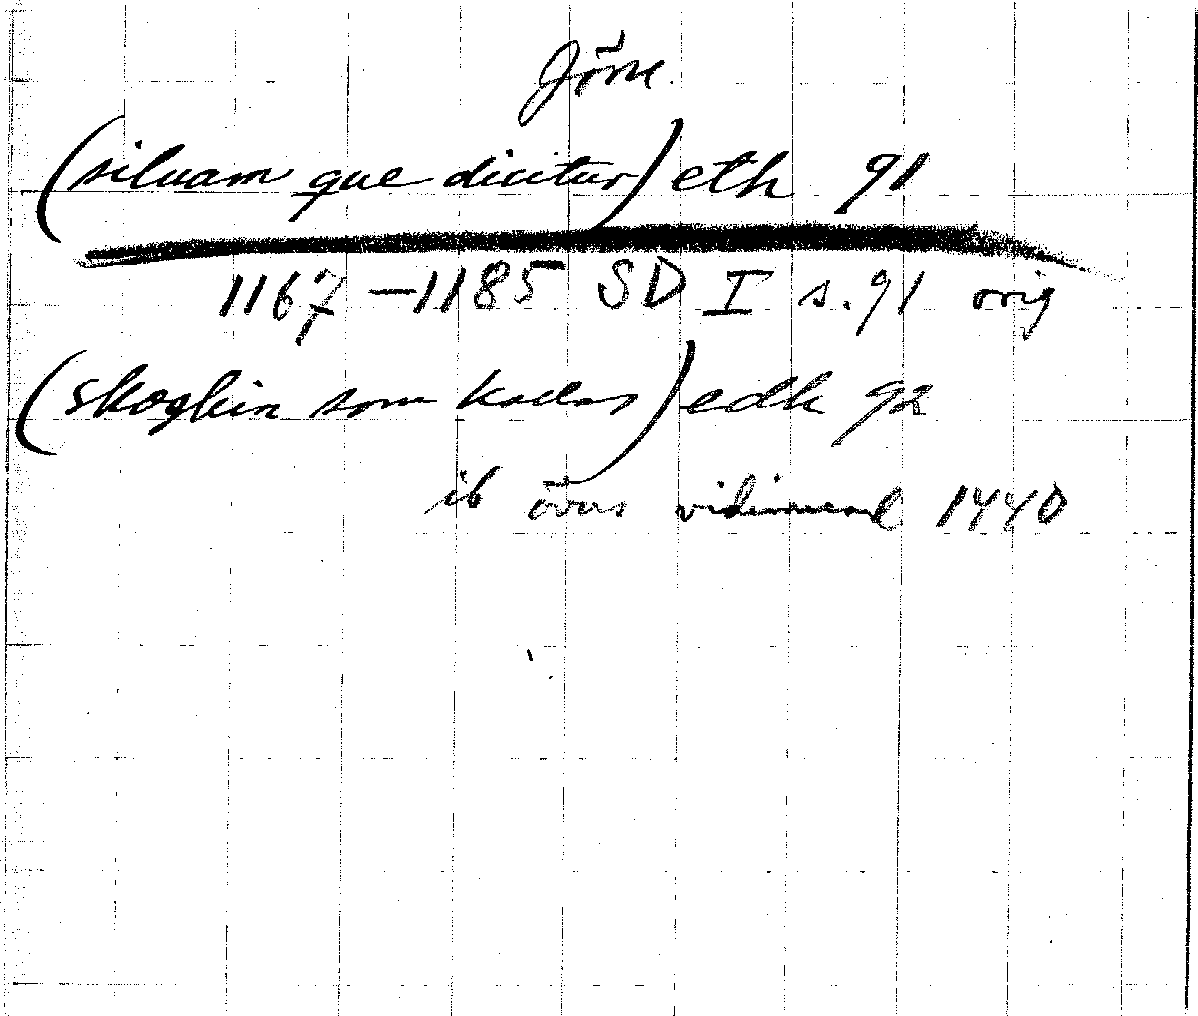 Jfrme.
(siluam que dicitur) eth 91
1167–1185 SD I s. 91 orig
(skoghin som kallas) edh 92
ib övers vidimerad 1440